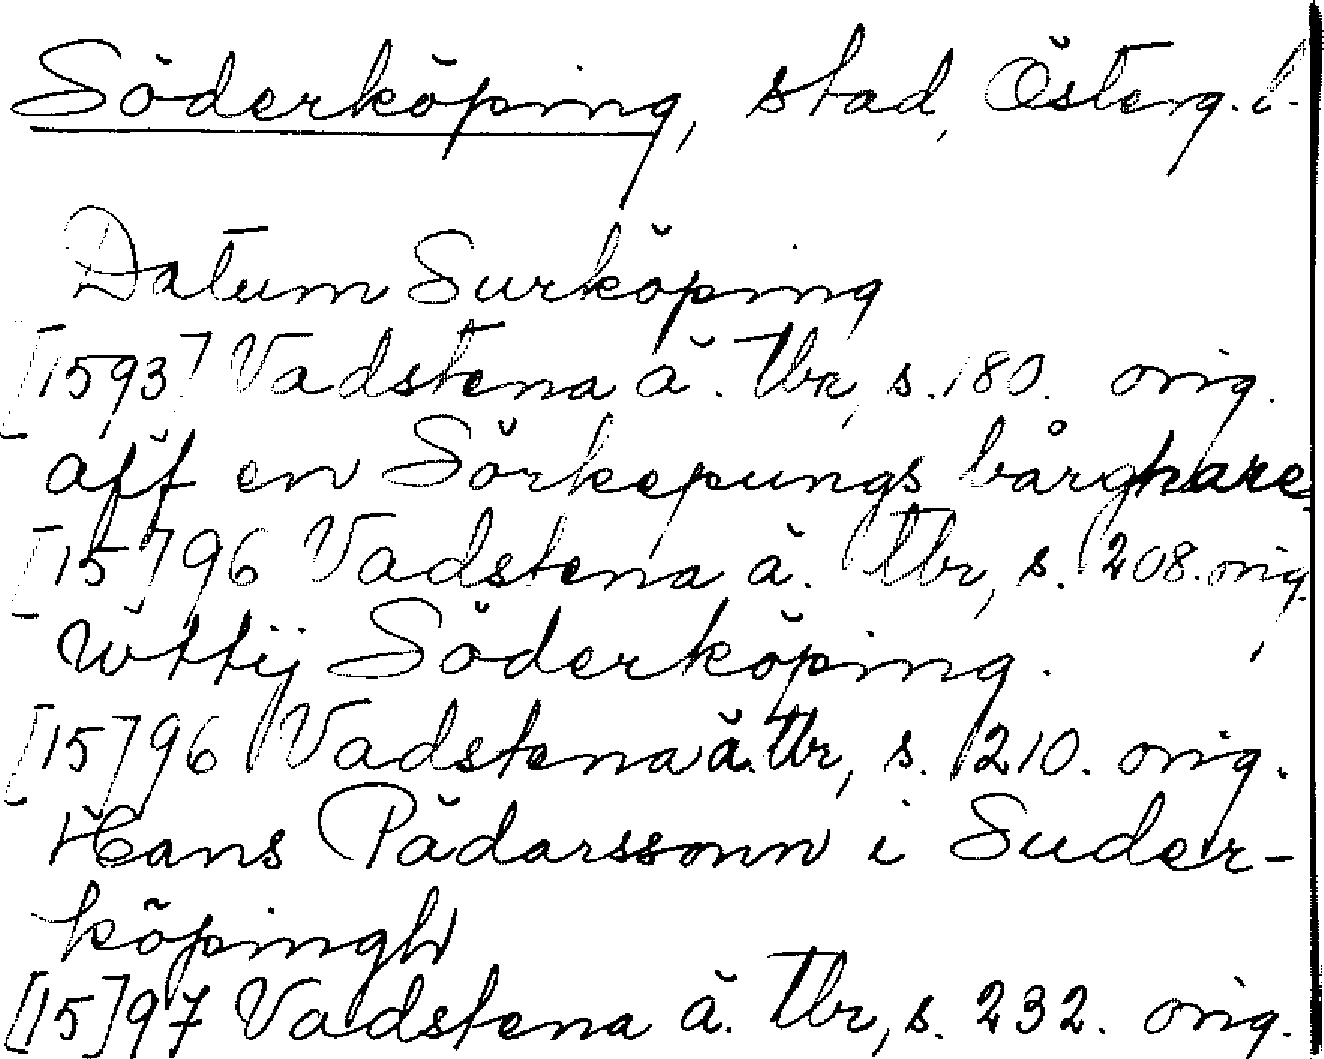 Söderköping, stad, Österg. l.
Datum Surköping
[1593] Vadstena ä. tbr, s. 180. orig.
aff en Sörkepungs bårghare
[15]96 Vadstena ä. tbr, s. 208. orig.
wttij Söderköping.
[15]96 Vadstena ä. tbr, s. 210. orig.
Hans Pädarssonn i Suder-
köpingh
[15]97 Vadstena ä. tbr, s. 232. orig.